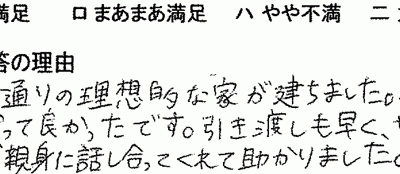 満足　ロ まあまあ満足　ハ やや不満　ニ
答の理由
通りの理想的な家が建ちました。
って良かったです。引き渡しも早く、
親身に話し合ってくれて助かりました。